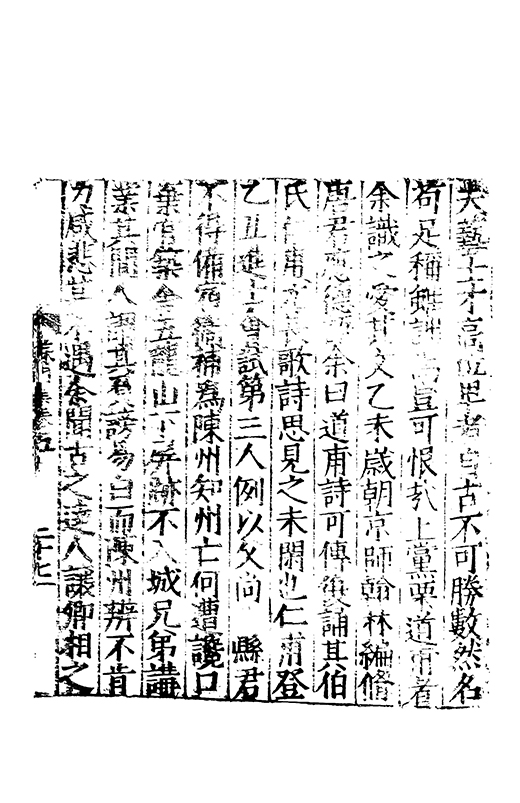 夫藝士才高位卑者自古不可勝數然名
苟足稱雖    豈可恨哉上黨栗道甫者
余識之愛其文乙未歲朝京師翰林編脩
唐君應德  余曰道甫詩可傳  誦其伯
氏仁甫    歌詩思見之未閑也仁甫登
乙丑進士會試第三人例以父尚 縣君
不得備宿衛補爲陳州知州亡何遭讒口
棄官築舍五龍山下屏跡不入城兄弟講
業其間人謂其君謗易白而陳州辨不肯
力咸悲其不遇余聞古之達人讓卿相之
卷 二十七